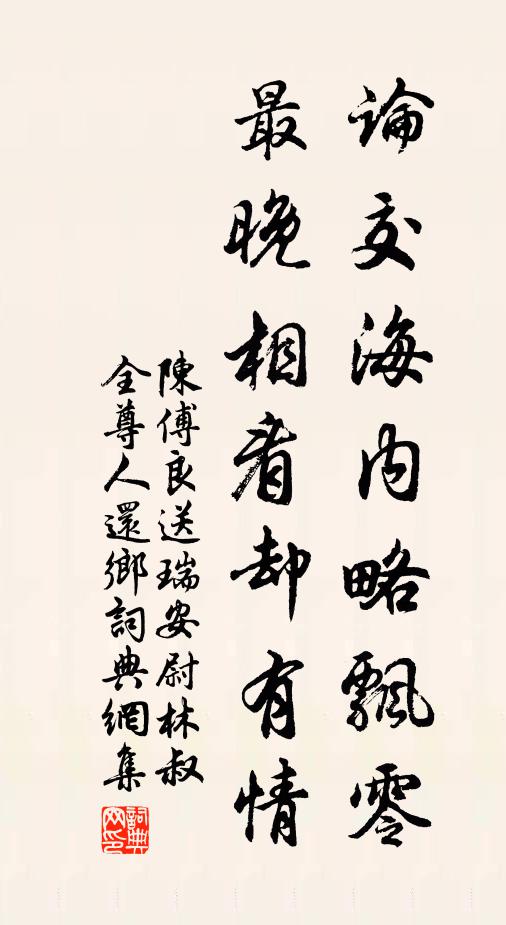 論交海内略飄零
最晚相看却有情
陳傅良送瑞安尉林叔
全尊人還鄉詞典網集
詞典
网印